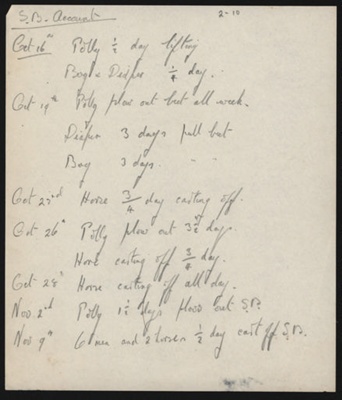 S.B. Account
2-10
Oct 16th Polly ½ day lifting
Boy & Dieper ¼ day.
Oct 19th Polly plow out beet all week.
Dieper 3 days pull beet
Boy 3 days. " "
Oct 23rd Horse ¾ day casting off.
Oct 26th Polly plow out 3½ days.
Horse casting off ¾ day.
Oct 28th Horse casting off all day.
Nov. 2nd Polly 1½ days plow out S.B.
Nov 9th 6 men and 2 horses ½ day cast off S.B.